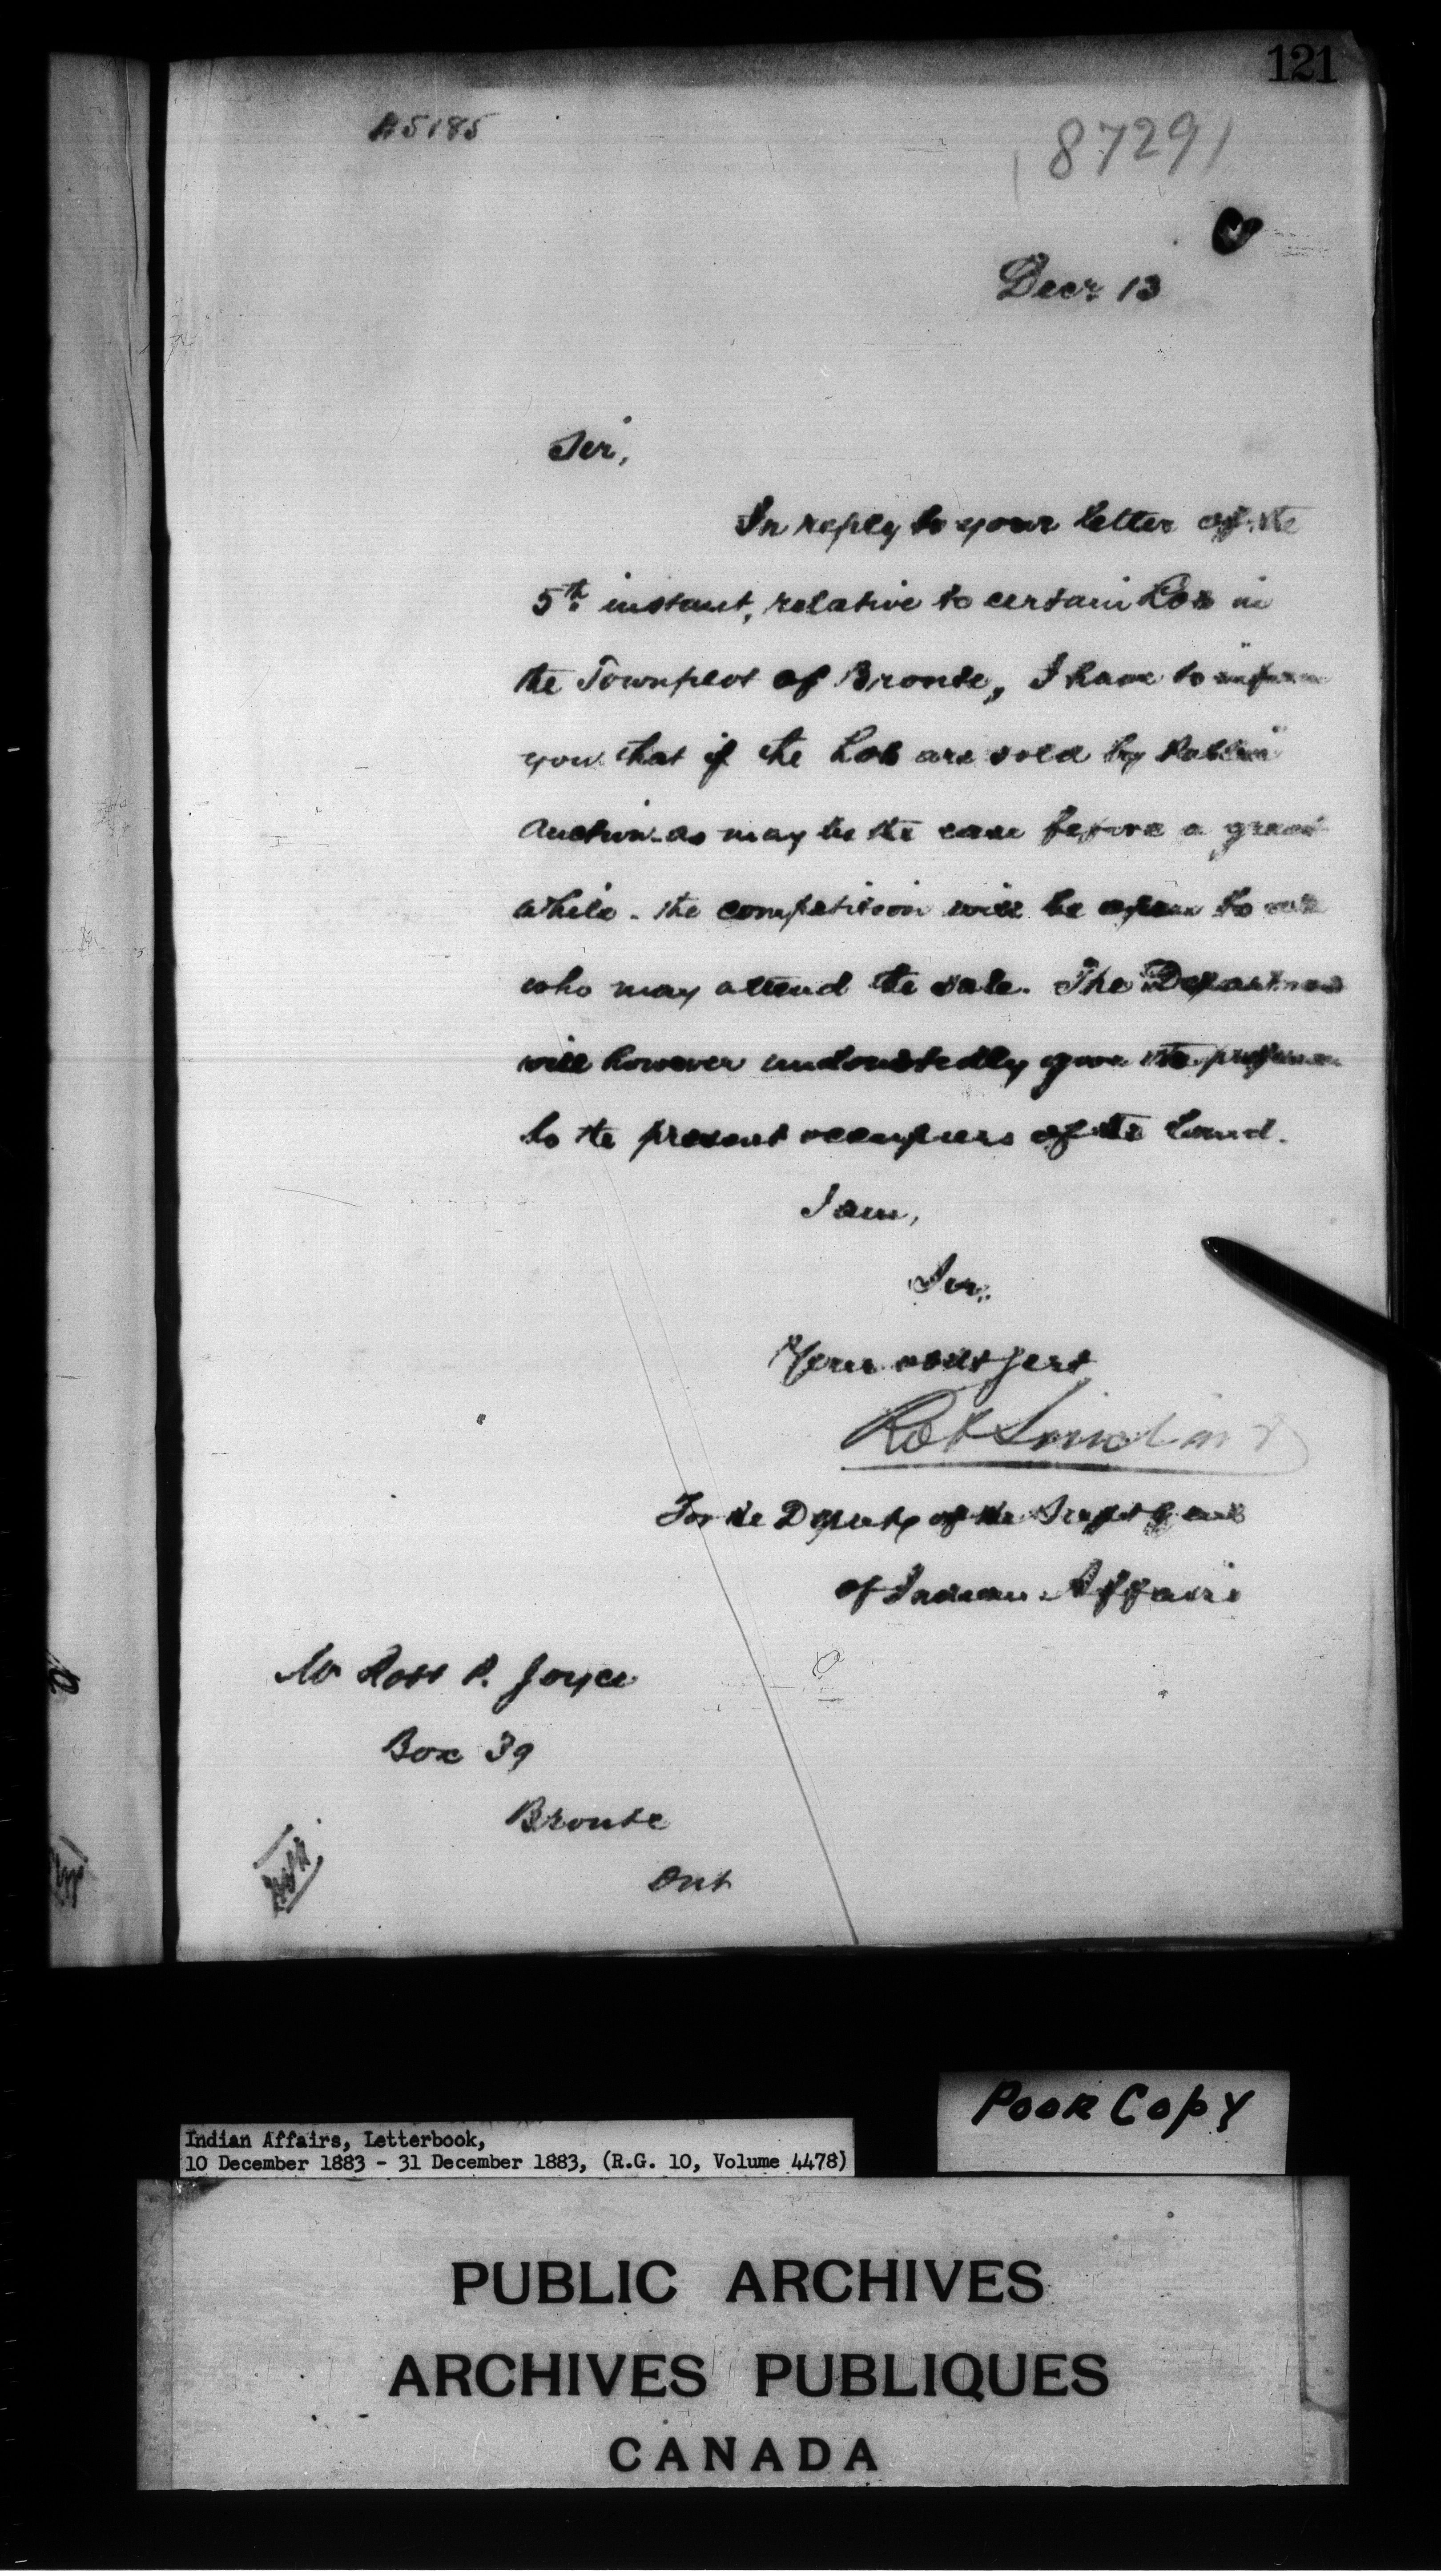 121
A5185
87291
Decr 13
Sir,
In reply to your letter of the
5th instant, relative to certain Lots in
the Townplot of Bronte, I have to inform
you that if the Lots are sold by Public
Auction - as may be the case before a great
while - the competition will be open to all
who may attend the sale. The Department
will however undoubtedly give the preference
to the present occupiers of the land.
I am,
Sir,
Your obedt Servt
Robt Sinclair
For the Deputy of the Supt Genl
of Indian Affairs
Mr Robt P. Joyce
Box 39
Bronte
Ont
Poor Copy
Indian Affairs, Letterbook,
10 December 1883 - 31 December 1883, (R.G. 10, Volume 4478)
PUBLIC ARCHIVES
ARCHIVES PUBLIQUES
CANADA